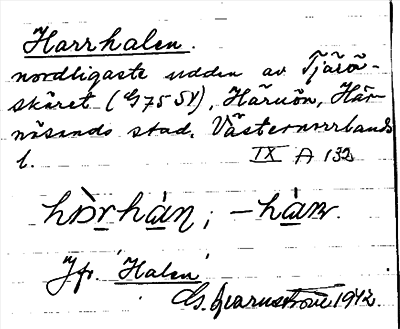 Harrhalen.
nordligaste udden av Tjärö-
skäret (G75SV), Härnön, Här-
nösands stad, Västernorrlands
l. IX A 132
hɔ̀rhàn; –hàn.
Jfr. Halen
1942.